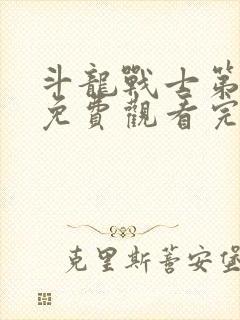 斗龍戰士第
免費觀看完
克里斯蒂安堡